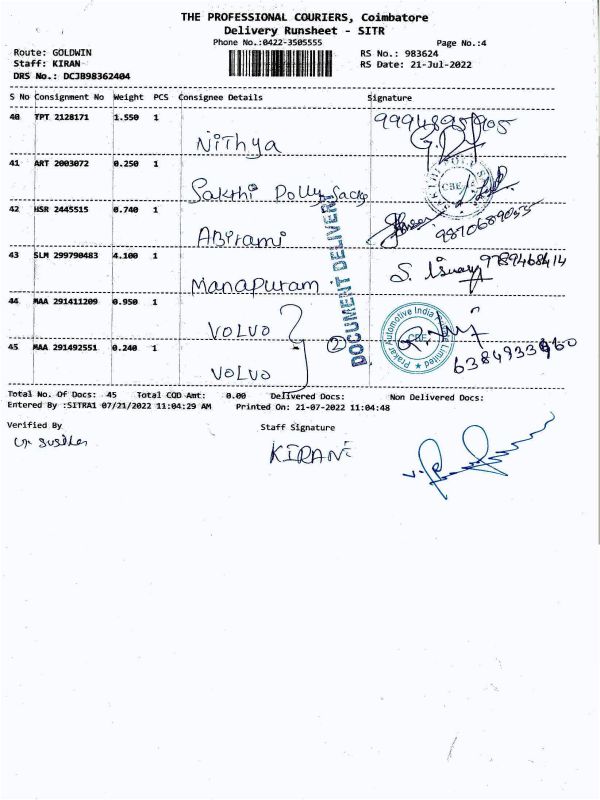 THE PROFESSIONAL COURIERS, Coimbatore
Delivery Runsheet - SITR
Phone No.:0422-3505555 Page No.:4
Route: GOLDWIN RS No.: 983624
Staff: KIRAN RS Date: 21-Jul-2022
DRS No.: DCJB98362404
S No Consignment No Weight PCS Consignee Details Signature
40 TPT 2128171 1.550 1
Nithya
41 ART 2003072 0.250 1
Sakthi Polly Sacks
42 HSR 2445515 0.740 1
Abirami 9870689055
43 SLM 299790483 4.100 1
Manapuram 9789468414
44 MAA 291411209 0.950 1
VOLVO
45 MAA 291492551 0.240 1
VOLVO
DOCUMENT DELIVERY
2
Prakar Automotive India Private Limited
CBE
Total No. Of Docs: 45 Total COD Amt: 0.00 Delivered Docs: Non Delivered Docs:
Entered By :SITRA1 07/21/2022 11:04:29 AM Printed On: 21-07-2022 11:04:48
Verified By Staff Signature
KIRAN